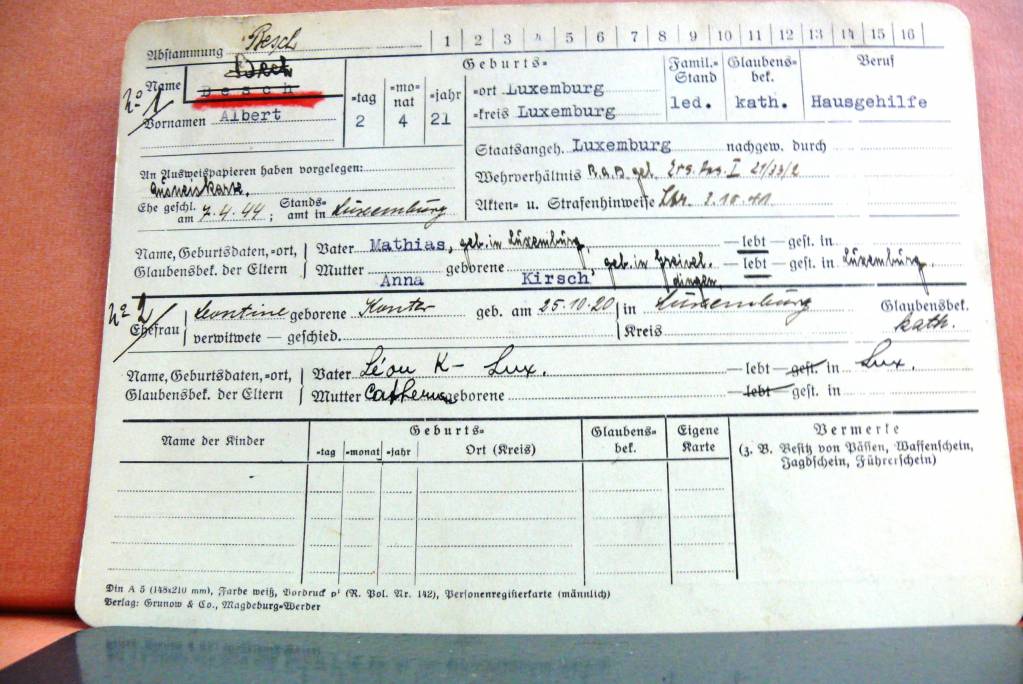 Abstammung Besch 1 2 3 4 5 6 7 8 9 10 11 12 13 14 15 16
Nº 1 Name Besch
Vornamen Albert
Geburts=
=tag =mo=nat =jahr
2 4 21
=ort Luxemburg
=kreis Luxemburg
Famil.=Stand
led.
Glaubens=bek.
kath.
Beruf
Hausgehilfe
Staatsangeh. Luxemburg nachgew. durch
An Ausweispapieren haben vorgelegen:
Wehrverhältnis R.A.D. gel. Ers. Res. I 21/33/2
Ehe geschl. am 7.4.44; Stands=amt in Luxemburg
Akten= u. Strafenhinweise
Name, Geburtsdaten, =ort, Glaubensbek. der Eltern
Vater Mathias, geb. in Luxemburg — lebt — gest. in
Mutter Anna geborene Kirsch geb. in — lebt — gest. in Luxemburg
Nº 2 Ehefrau Leontine geborene Konter geb. am 25.10.20 in Luxemburg Glaubensbek.
verwitwete — geschied. Kreis kath.
Name, Geburtsdaten, =ort, Glaubensbek. der Eltern
Vater Léon K– Lux. — lebt — gest. in Lux.
Mutter geborene — lebt — gest. in
Name der Kinder
Geburts=
=tag =monat =jahr Ort (Kreis)
Glaubens=bek.
Eigene Karte
Vermerke
(z. B. Besitz von Pässen, Waffenschein, Jagdschein, Führerschein)
Din A 5 (148x210 mm), Farbe weiß, Vordruck p¹ (R. Pol. Nr. 142), Personenregisterkarte (männlich)
Verlag: Grunow & Co., Magdeburg=Werder